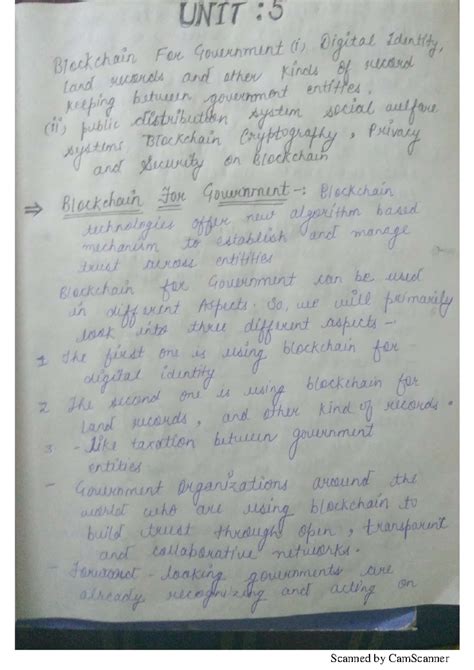 UNIT : 5
Blockchain For Government (i) Digital Identity,
land records and other kinds of record
keeping between government entities.
(ii) public distribution system social welfare
systems Blockchain Cryptography, Privacy
and Security on Blockchain
⇒ Blockchain For Government -: Blockchain
technologies offer new algorithm based
mechanism to establish and manage
trust across entitities
Blockchain for Government can be used
in different Aspects. So, we will primarily
look into three different aspects -
1 The first one is using blockchain for -
digital identity
2 The second one is using blockchain for
land records, and other kind of records.
3 - like taxation between government
entities
- Government Organizations around the
world who are using blockchain to
build trust through open, transparent
and collaborative networks.
- Forward - looking governments are
already recognizing and acting on
Scanned by CamScanner